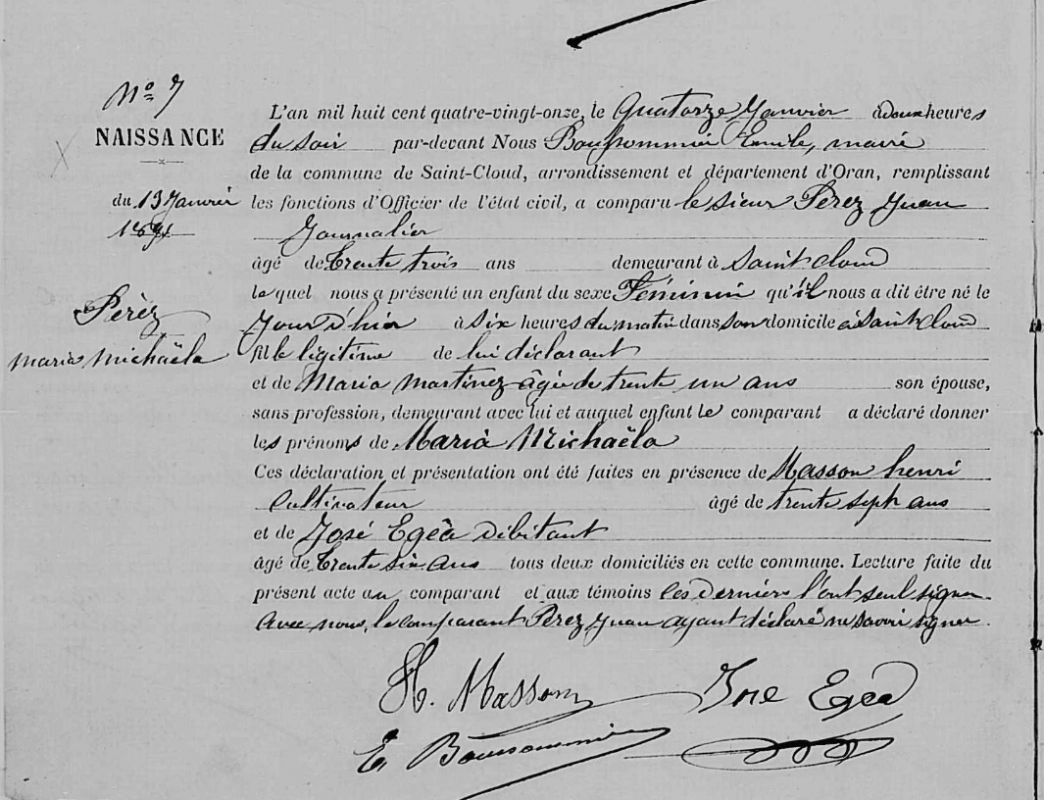 Nº 7
NAISSANCE
du 13 Janvier
1891
Pérez
Maria Michaëla
L'an mil huit cent quatre-vingt-onze, le Quatorze Janvier à deux heures
du soir par-devant Nous Boussommier Emile, maire
de la commune de Saint-Cloud, arrondissement et département d'Oran, remplissant
les fonctions d'Officier de l'état civil, a comparu le sieur Pérez Juan
Journalier
âgé de trente trois ans demeurant à Saint Cloud
lequel nous a présenté un enfant du sexe Féminin qu'il nous a dit être né le
Jour d'hier à six heures du matin dans son domicile à Saint Cloud
fille légitime de lui déclarant
et de Maria Martinez âgée de trente un ans son épouse,
sans profession, demeurant avec lui et auquel enfant le comparant a déclaré donner
les prénoms de Maria Michaëla
Ces déclaration et présentation ont été faites en présence de Masson henri
Cultivateur âgé de trente sept ans
et de José Egéa débitant
âgé de trente six ans tous deux domiciliés en cette commune. Lecture faite du
présent acte au comparant et aux témoins ces derniers l'ont seul signer
avec nous, le comparant Pérez Juan ayant déclaré ne savoir signer.
H. Masson José Egéa
E. Boussommier